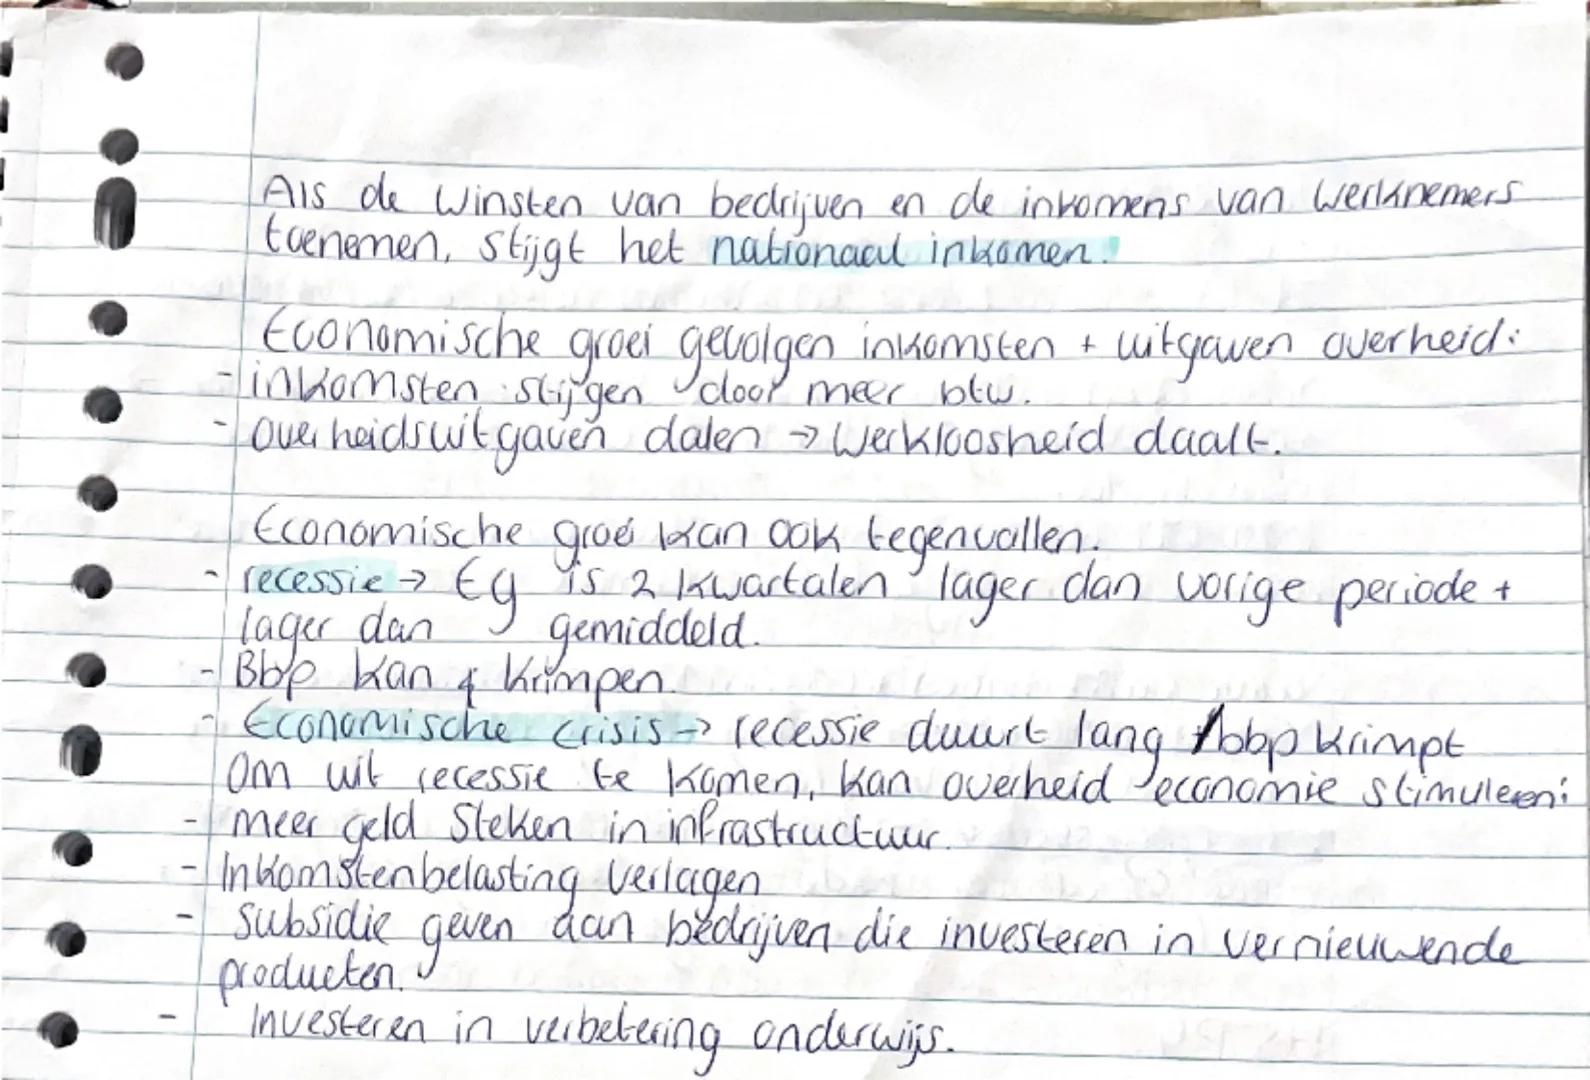 Als de winsten van bedrijven en de inkomens van werknemers
toenemen, stijgt het nationaal inkomen.
Economische groei gevolgen inkomsten + uitgaven overheid:
- inkomsten stijgen door meer btw.
- overheidsuitgaven dalen → werkloosheid daalt.
Economische groei kan ook tegenvallen.
- recessie → Eg is 2 kwartalen lager dan vorige periode +
lager dan gemiddeld.
- Bbp kan krimpen.
- Economische crisis → recessie duurt lang / bbp krimpt
Om uit recessie te komen, kan overheid economie stimuleren:
- meer geld steken in infrastructuur.
- Inkomstenbelasting verlagen
- subsidie geven aan bedrijven die investeren in vernieuwende
producten.
- Investeren in verbetering onderwijs.